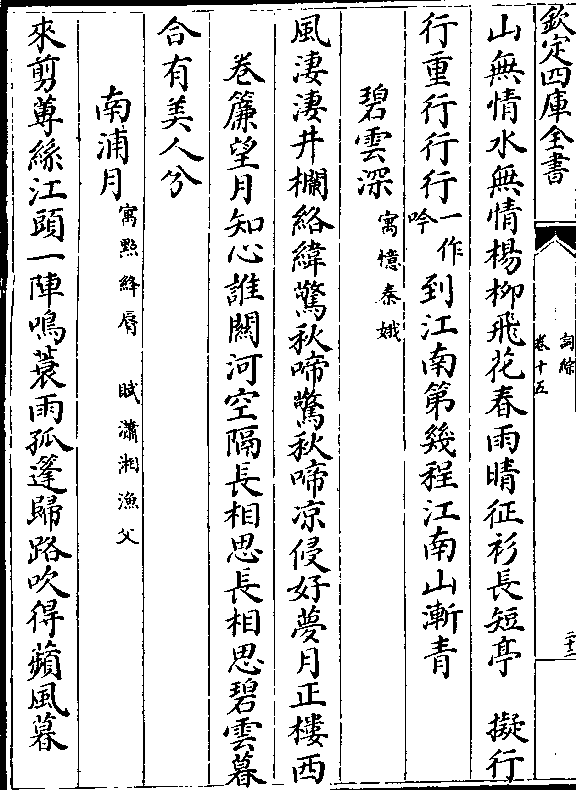 欽定四庫全書
詞綜
卷十五
二十三
山無情水無情楊柳飛花春雨晴征衫長短亭 擬行
行重行行行一作吟到江南第幾程江南山漸青
碧雲深寓憶秦娥
風淒淒井欄絡緯驚秋啼驚秋啼凉侵好夢月正樓西
卷簾望月知心誰關河空隔長相思長相思碧雲暮
合有美人兮
南浦月寓點絳脣 賦瀟湘漁父
來剪蓴絲江頭一陣鳴蓑雨孤篷歸路吹得蘋風暮